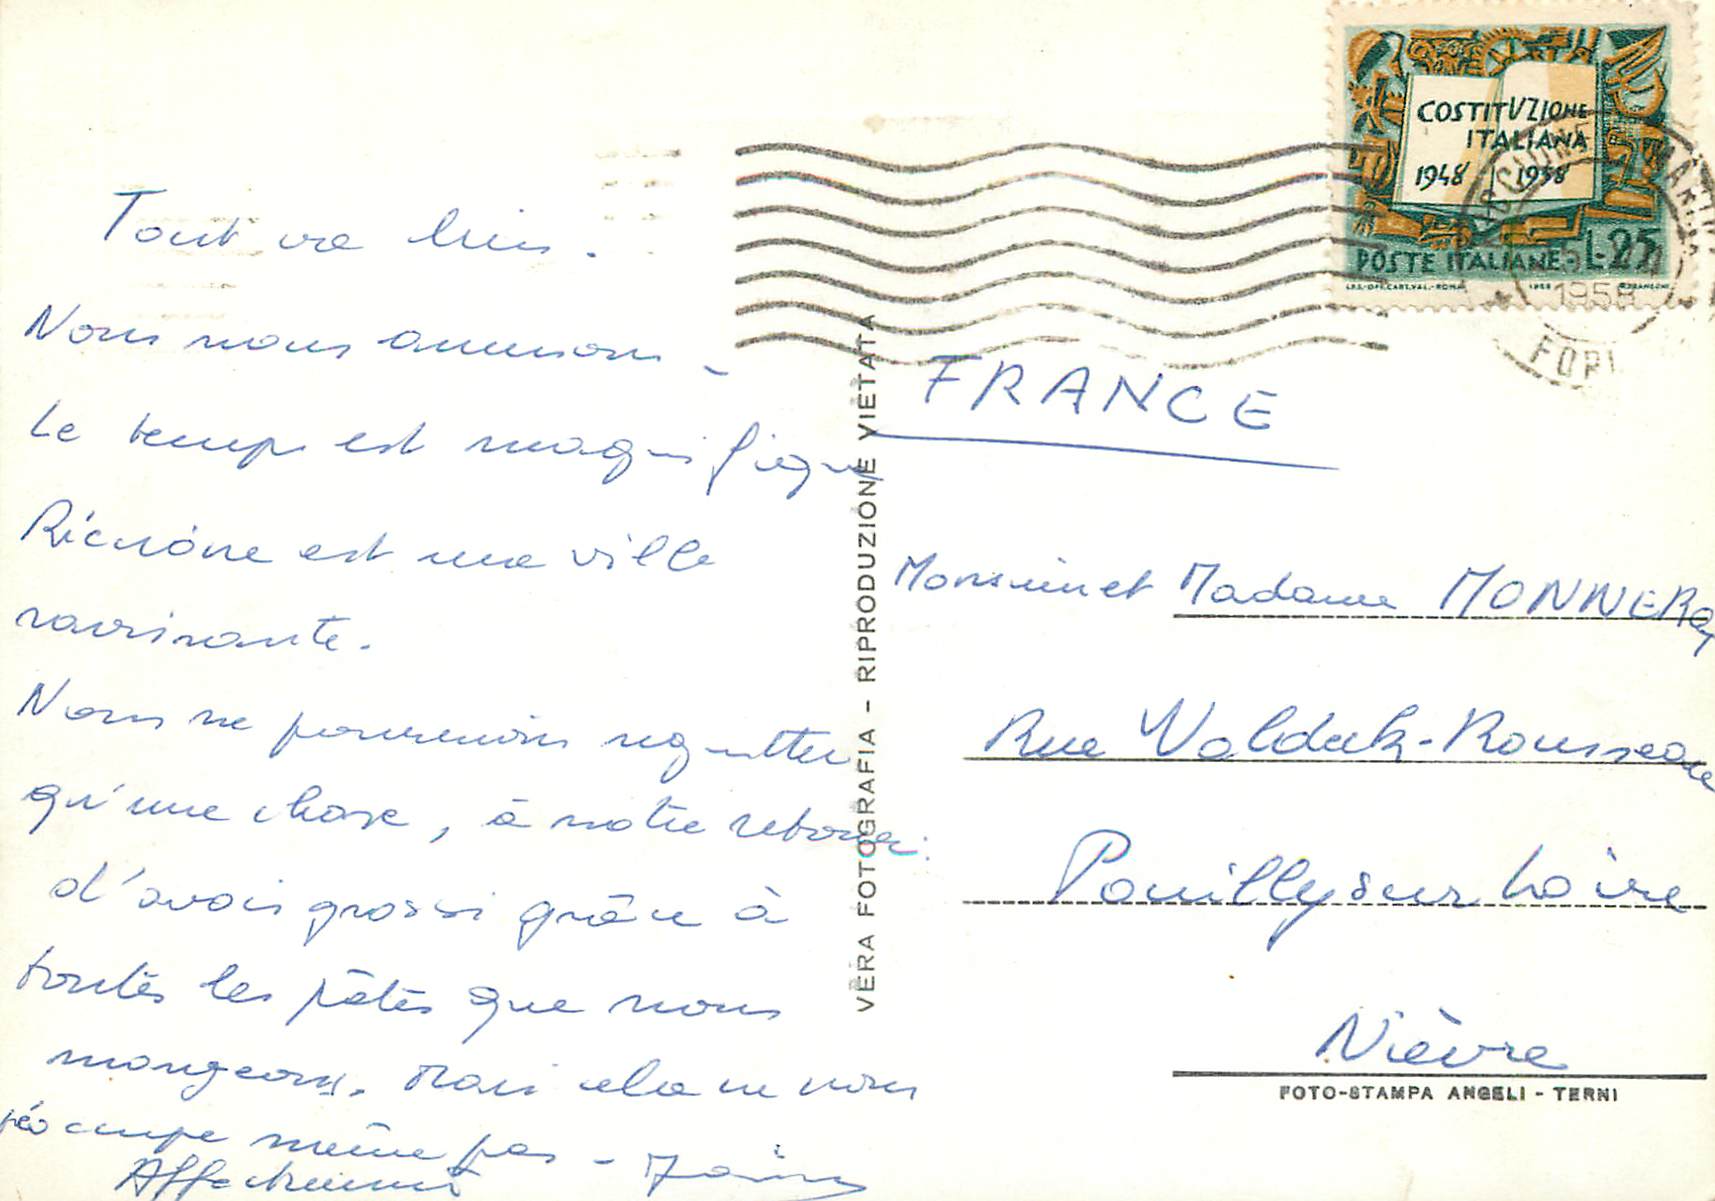 Tout va bien.
Nous nous amusons -
Le temps est magnifique
Riccione est une ville
ravissante.
Nous ne pourrions regretter
qu'une chose, à notre retour:
d'avoir grossi grâce à
toutes les pâtes que nous
mangeons. Mais cela ne nous
préoccupe même pas -
Affectueusement
VERA FOTOGRAFIA - RIPRODUZIONE VIETATA
COSTITVZIONE
ITALIANA
1948 1958
POSTE ITALIANE - L.25
I.P.S.-OFF.CART.VAL.-ROMA 1958
1958
FORLI
FRANCE
Monsieur et Madame MONNERey
Rue Waldeck-Rousseau
Pouilly sur Loire
Nièvre
FOTO-STAMPA ANGELI - TERNI